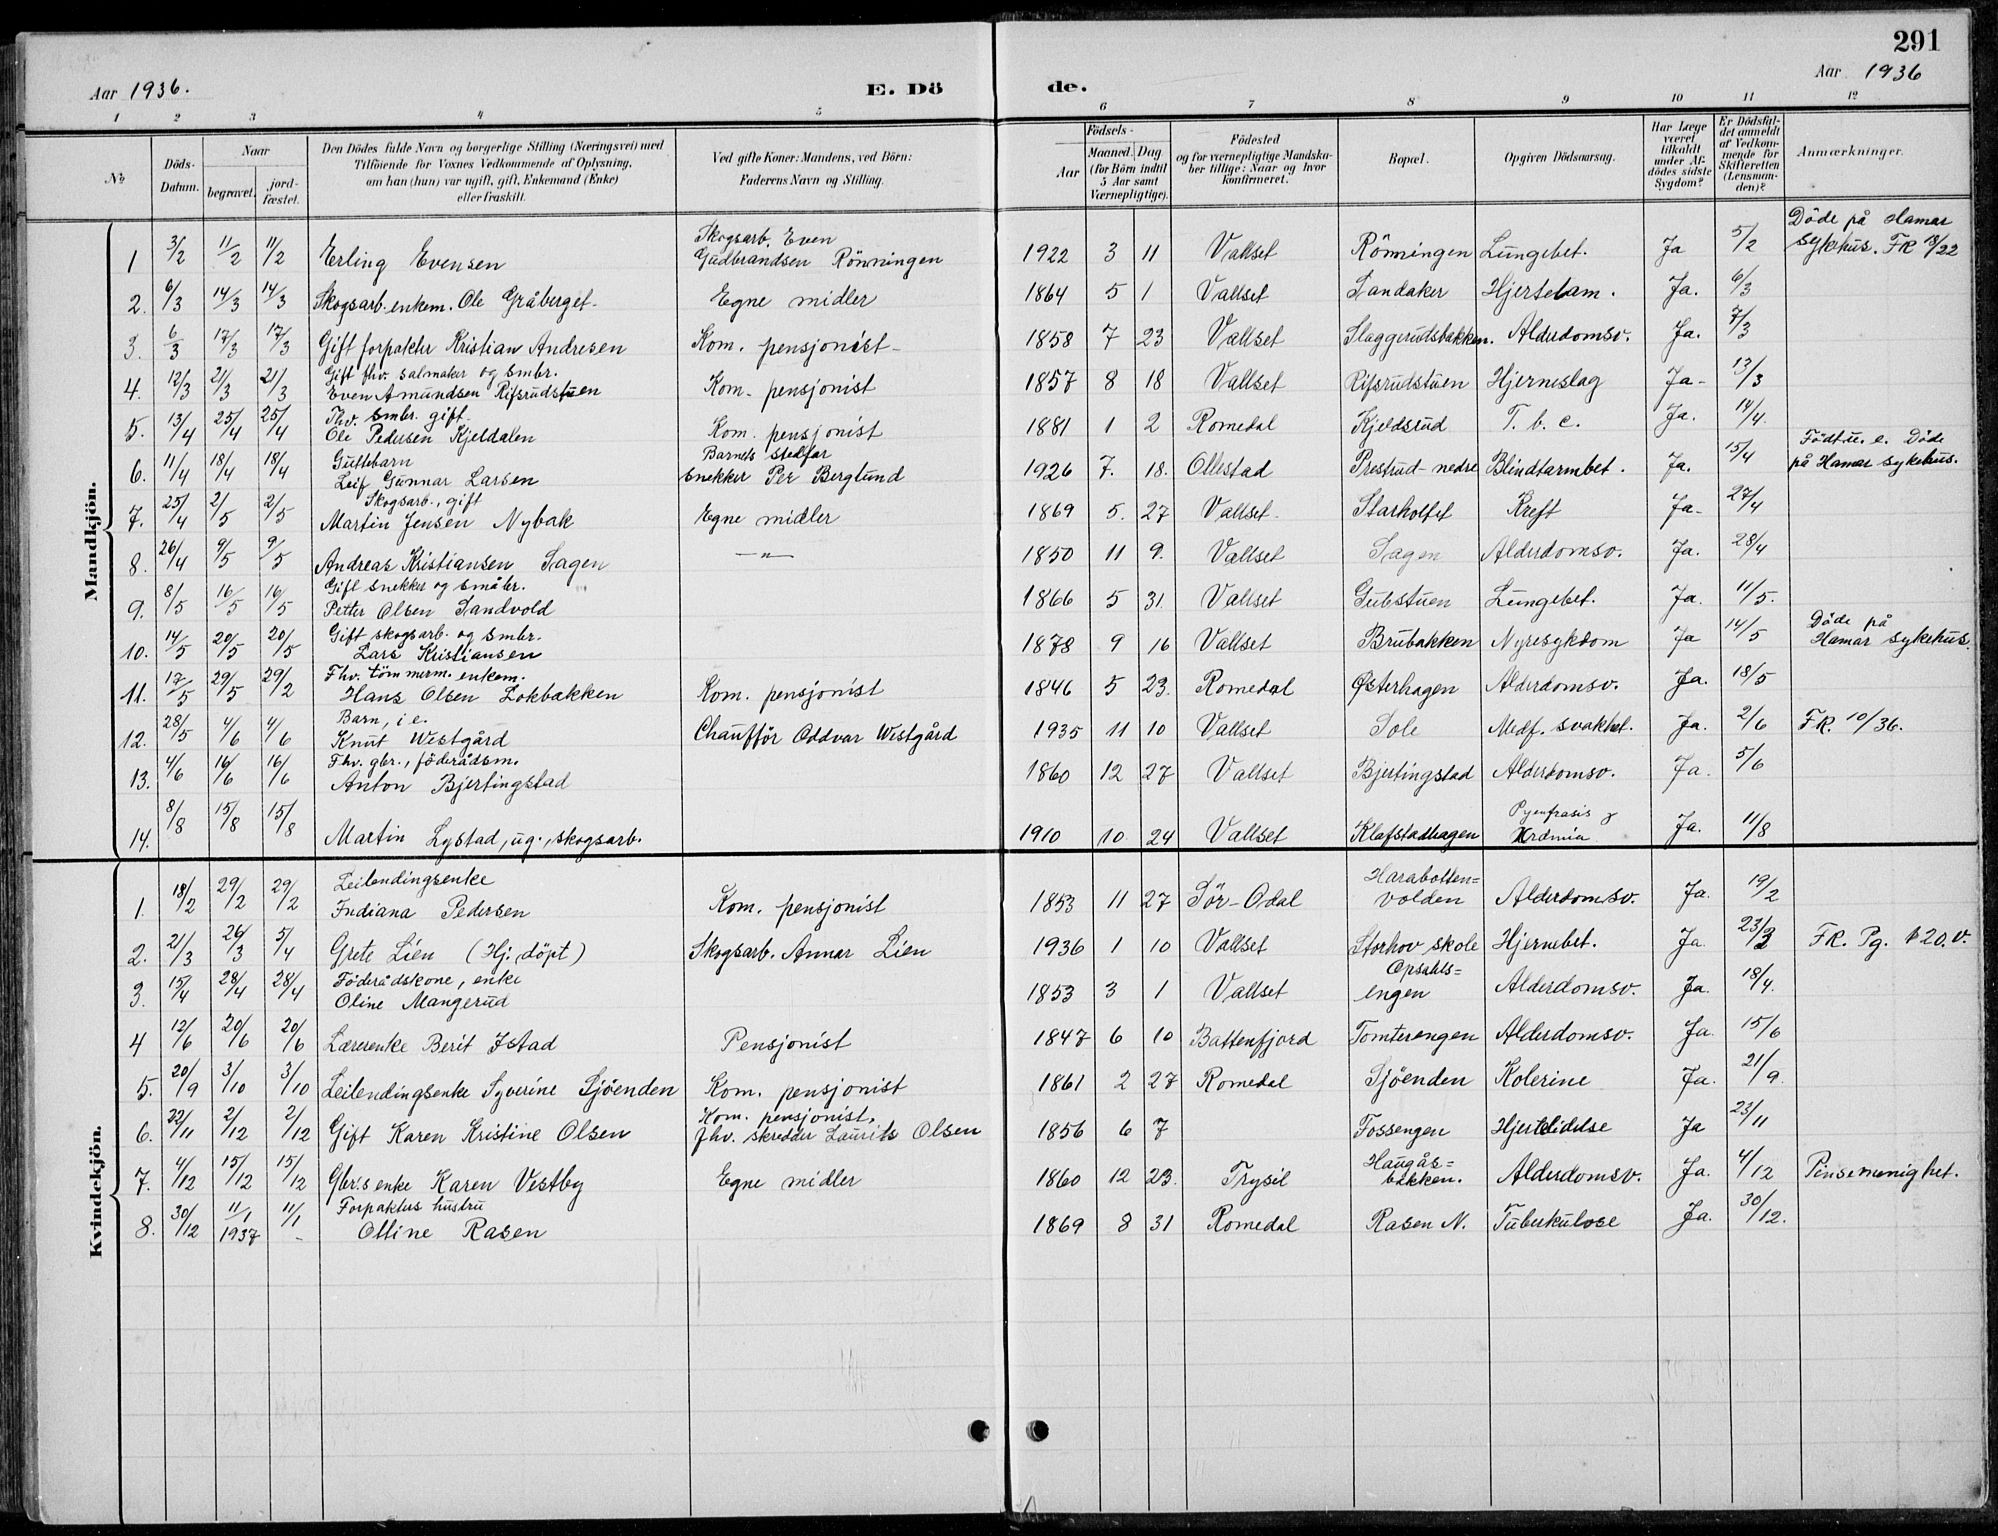 291
Aar 1936.
E. Dö
de.
Aar 1936
1 2 3 4 5 6 7 8 9 10 11 12
No
Döds-Datum.
Naar
begravet.
jord-fæstet.
Den Dödes fulde Navn og borgerlige Stilling (Næringsvei) med
Tilföiende for Voxnes Vedkommende af Oplysning,
om han (hun) var ugift, gift, Enkemand (Enke)
eller fraskilt.
Ved gifte Koner: Mandens, ved Börn:
Faderens Navn og Stilling.
Födsels-
Aar
Maaned. Dag
(for Börn indtil
5 Aar samt
Værnepligtige).
Födested
og for værnepligtige Mandska-
ber tillige: Naar og hvor
konfirmeret.
Bopæl.
Opgiven Dödsaarsag.
Har Læge
været
tilkaldt
under Af-
dödes sidste
Sygdom?
Er Dödsfal-
det anmeldt
af Vedkom-
mende for
Skifteretten
(Lensman-
den)?
Anmærkninger.
Mandkjön.
1 3/2 11/2 11/2 Erling Evensen Skogsarb. Even Gudbrandsen Rönningen 1922 3 11 Vallset Rönningen Lungebet. Ja 5/2 Döde på Hamar sykehus. FR 18/22
2. 6/3 14/3 14/3 Skogsarb. enkem. Ole Gråberget. Egne midler 1864 5 1 Vallset Sandaker Hjertelam. Ja. 6/3
3. 6/3 17/3 17/3 Gift forpakter Kristian Andresen Kom. pensjonist 1858 7 23 Vallset Slaggerudsbakken. Alderdomsv. Ja. 7/3
4. 12/3 21/3 21/3 Gift fhv. salmaker og smbr. Even Amundsen Rifsrudstuen Kom. pensjonist 1857 8 18 Vallset Rifsrudstuen Hjerneslag Ja 13/3
5. 13/4 25/4 25/4 Fhv. smbr. gift. Ole Pedersen Kjeldalen Kom. pensjonist 1881 1 2 Romedal Kjeldsrud T. b. c. Ja. 14/4.
6. 11/4 18/4 18/4 Guttebarn Leif Gunnar Larsen Barnets stedfar snekker Per Berglund 1926 7. 18. Ollestad Prestrud nedre Blindtarmbet. Ja. 15/4 Födt u. e. Döde på Hamar sykehus.
7. 25/4 2/5 2/5 Skogsarb., gift Martin Jensen Nybak Egne midler 1869 5. 27 Vallset Starholtet Kreft Ja 27/4
8. 26/4 9/5 9/5 Andreas Kristiansen Sagen —"— 1850 11 9. Vallset Sagen Alderdomsv. Ja. 28/4
9. 8/5 16/5 16/5 Gift snekker og småbr. Petter Olsen Sandvold 1866 5 31. Vallset Gubstuen Lungebet. Ja. 11/5.
10. 14/5 20/5 20/5 Gift skogsarb. og smbr. Lars Kristiansen 1878 9 16 Vallset Brubakken Nyresykdom Ja 14/5 Döde på Hamar sykehus.
11. 17/5 29/5 29/2 Fhv. tömmerm. enkem. Hans Olsen Lokbakken Kom. pensjonist 1846 5 23. Romedal Østerhagen Alderdomsv. Ja. 18/5
12. 28/5 4/6 4/6 Barn, i e. Knut Westgård Chaufför Oddvar Westgård 1935 11 10 Vallset Sole Medf. svakhet. Ja. 2/6 FR. 10/36.
13. 4/6 16/6 16/6 Fhv. gbr., föderådsm. Anton Bjertingstad 1860 12 27 Vallset Bjertingstad Alderdomsv. Ja. 5/6
14. 8/8 15/8 15/8 Martin Lystad, ug., skogsarb. 1910 10 24 Vallset Klafstadhagen Ja. 11/8
Kvindekjön.
1. 18/2 29/2 29/2 Leilendingsenke Indiana Pedersen Kom. pensjonist 1853 11 27 Sör-Odal Harabotten=volden Alderdomsv. Ja. 19/2
2. 21/3 26/3 5/4 Grete Lien (Hj. döpt) Skogsarb. Annar Lien 1936 1 10 Vallset Storhov skole Hjernebet. Ja. 23/3 FR. Pg. 20. v.
3. 15/4 28/4 28/4 Föderådskone, enke Oline Mangerud 1853 3 1 Vallset Opsahls=engen Alderdomsv. Ja. 18/4.
4 12/6 20/6 20/6 Lærerenke Berit Istad Pensjonist 1847 6 10 Battenfjord Tomterengen Alderdomsv. Ja. 15/6
5. 20/9 3/10 3/10 Leilendingsenke Syverine Sjöenden Kom. pensjonist 1861 2 27 Romedal Sjöenden Kolerine Ja. 21/9.
6. 22/11 2/12 2/12 Gift Karen Kristine Olsen Kom. pensjonist. fhv. skredder Laurits Olsen 1856 6 7 Fossengen Hjertelidelse Ja 23/11
7. 4/12 15/12 15/12 Gbr.s enke Karen Vestby Egne midler 1860 12 23. Trysil Haugås=bakken. Alderdomsv. Ja. 4/12 Pinsemenighet.
8. 30/12 11/1 1937 11/1 Forpakters hustru Olline Rasen 1869 8 31 Romedal Rasen N. Tuberkulose Ja. 30/12.